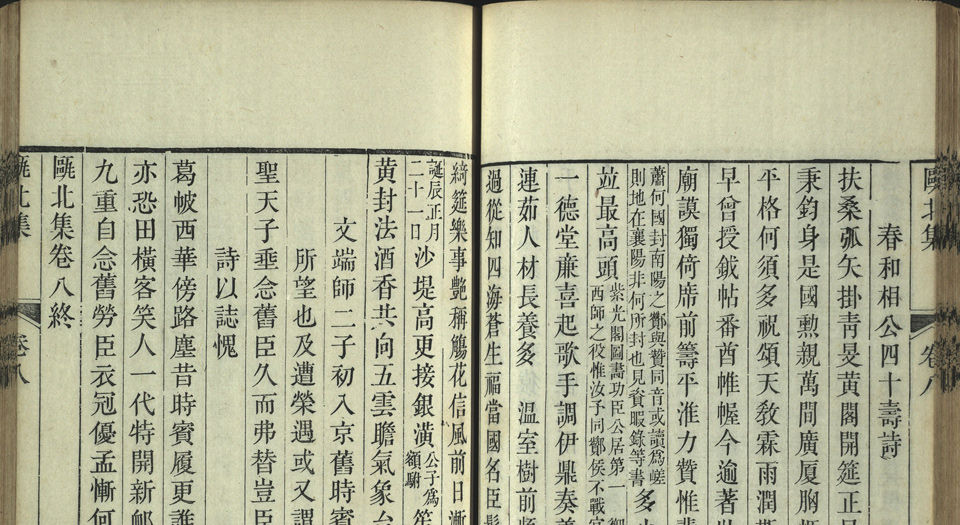 甌北集
卷八
春和相公四十壽詩
扶桑弧矢掛青旻黃閣開筵正
秉鈞身是國勲親萬間廣厦胸
平格何須多祝頌天敎霖雨潤
早曾授鉞帖番酋帷幄今逾著
廟謨獨倚席前籌平淮力贊惟
蕭何國封南陽之酇與贊同音或讀爲嵯
則地在襄陽非何所封也見貧暇錄等書
多
並最高頭
紫光閣圖畵功臣公居第一
西師之役惟汝予同酇侯不戰
一德堂亷喜起歌手調伊鼎奏
連茹人材長養多溫室樹前
過從知四海蒼生福當國名臣
綺筵樂事艷稱觴花信風前日漸
誕辰正月
二十一日
沙堤高更接銀潢
公子爲
額駙
黃封法酒香共向五雲瞻氣象
文端師二子初入京舊時賓
所望也及遭榮遇或又謂
聖天子垂念舊臣久而弗替豈臣
詩以誌愧
葛帔西華傍路塵昔時賓履更誰
亦恐田橫客笑人一代特開新
九重自念舊勞臣衣冠優孟慚何
甌北集卷八終
甌北集
卷八